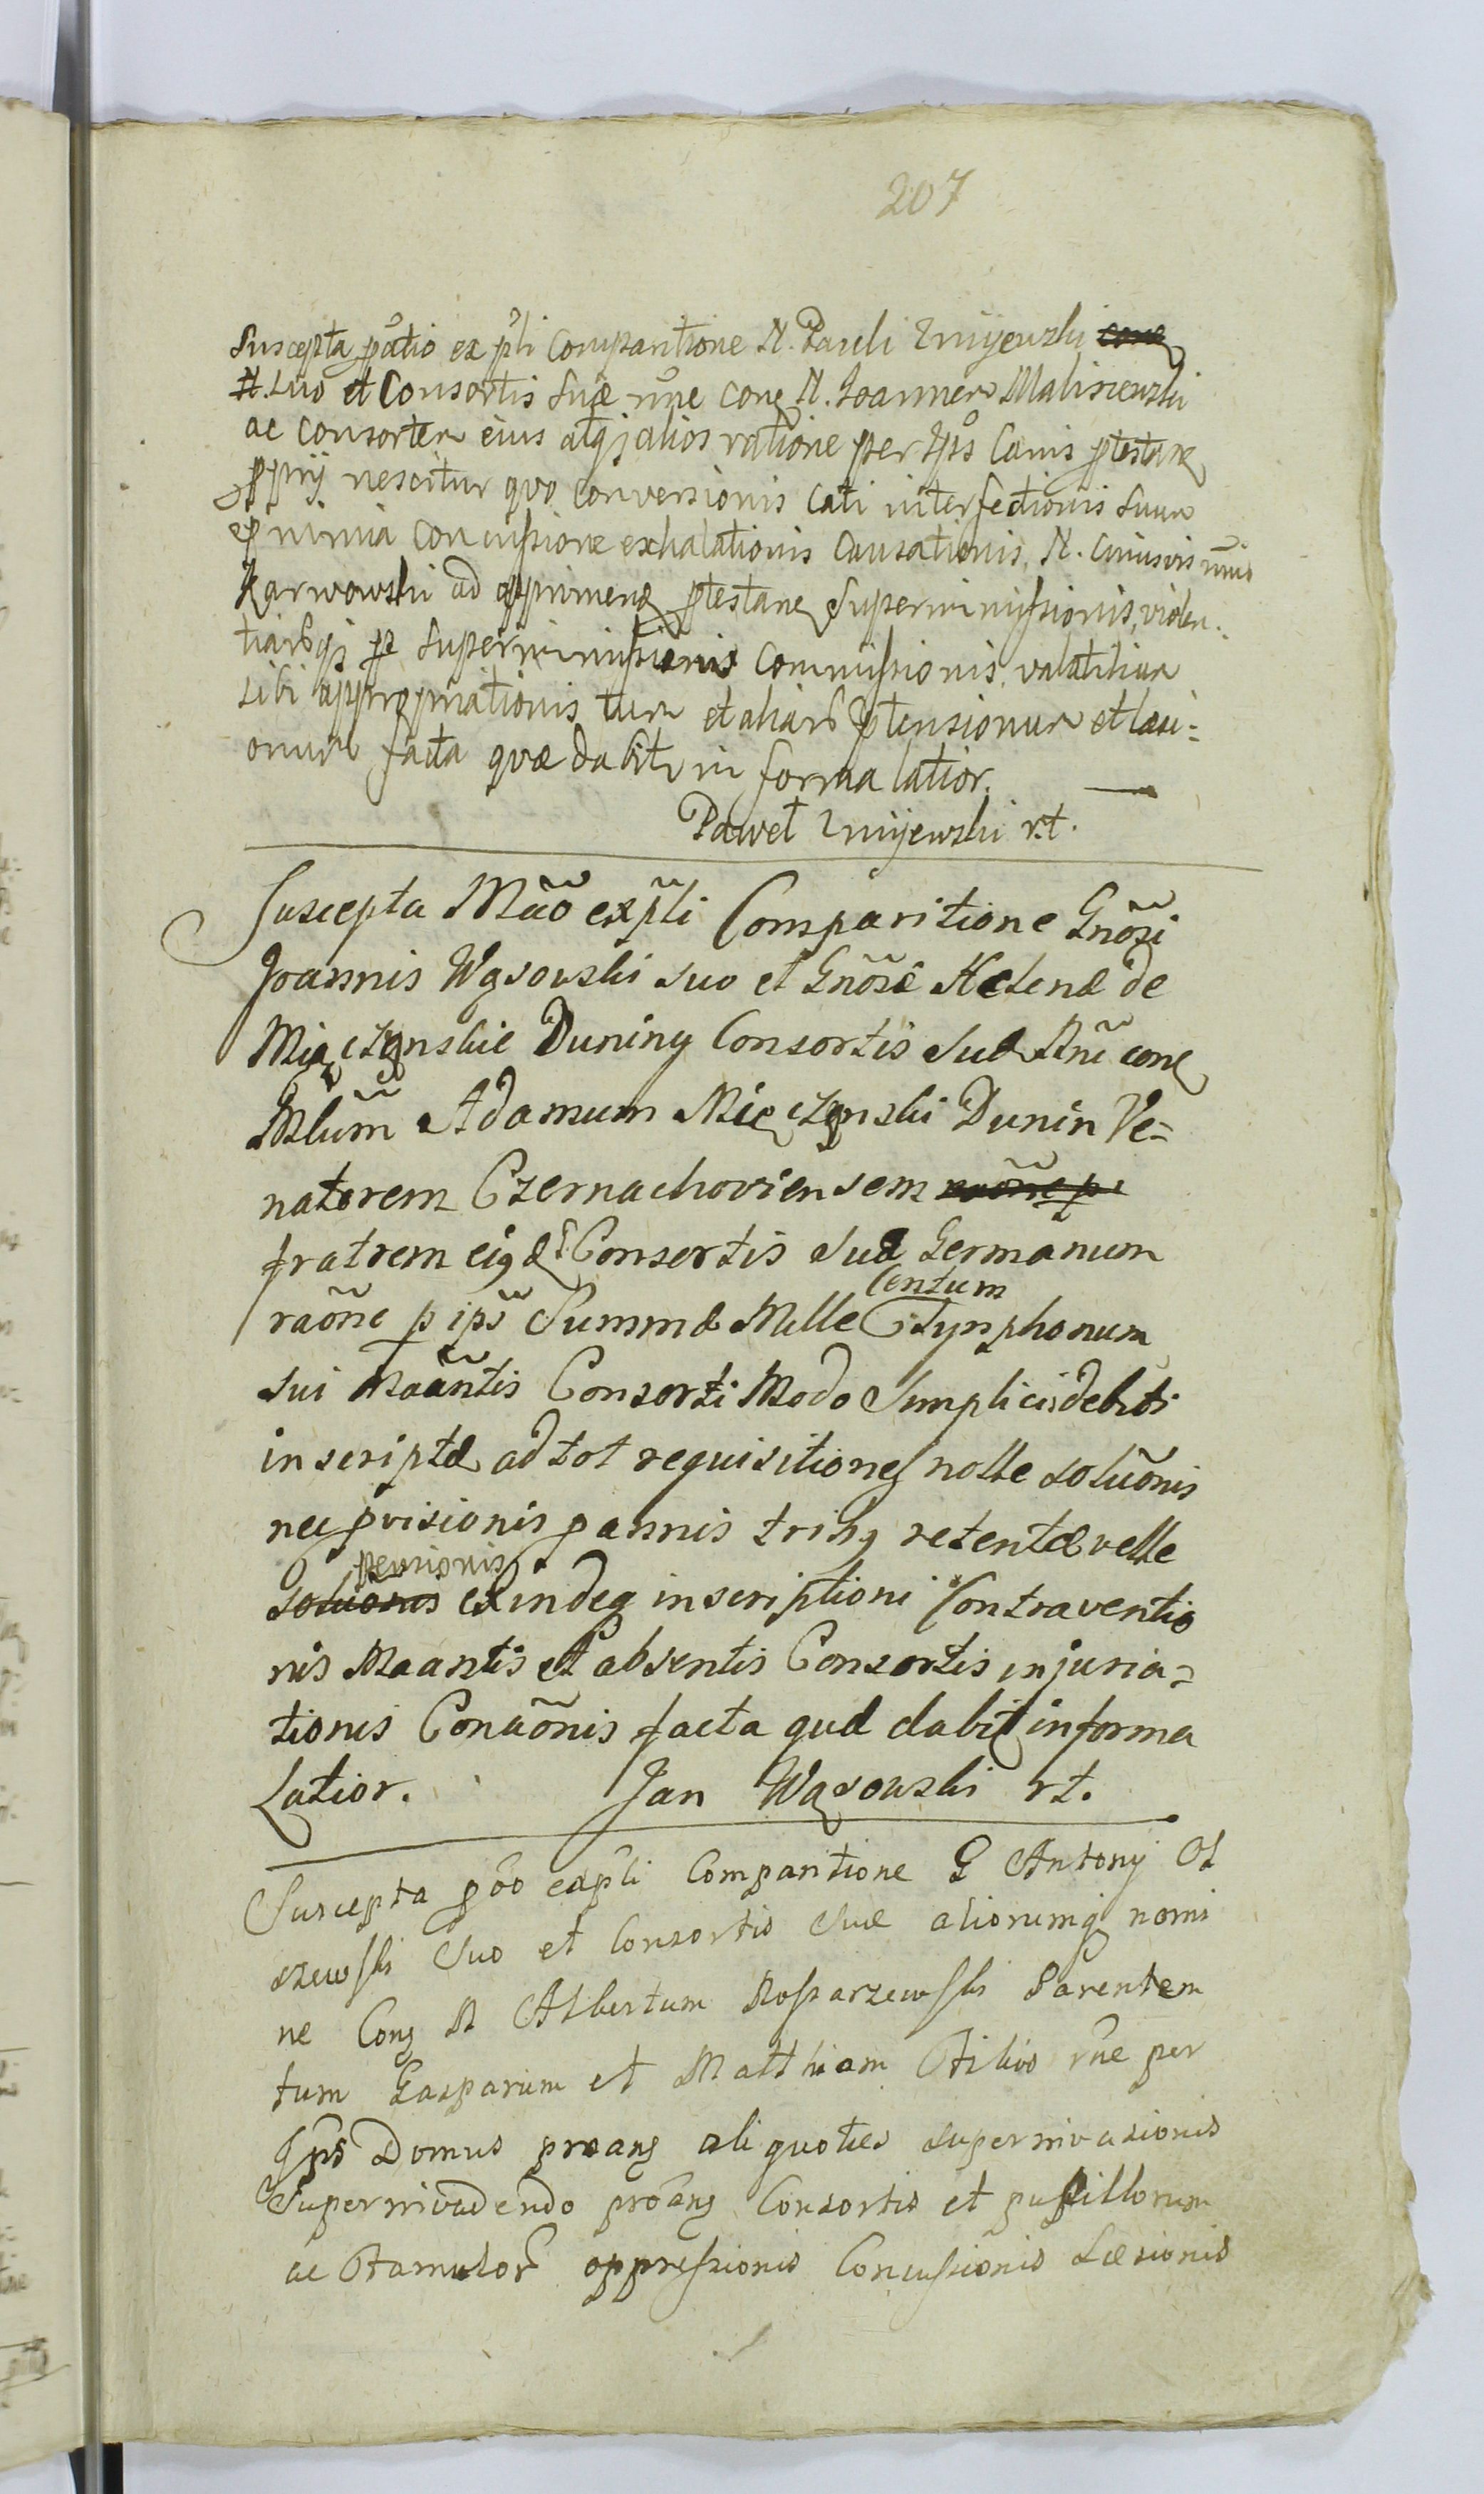 207
Suscepta pãtio ex pñli Comparitione N. Pauli Zmijewski
N. suo et Consortis suæ nñe cone N. Joannem Malisiewski
ac consortem eius atq; alios ratione per Ipõs Canis ptestane
pprij nescitur quo conversionis Cati interfectionis suum
nimia concussione exhalationis Causationis, N. Cuiusvis
Karwowski ad opprimene ptestane superimmissionis, violen:
tiarõq; p superimmissionis Commissionis, valatilium
sibi appropriationis tum et aliarõ ptensionum et læsi:
onum facta quæ dabitr in forma latior.
Paweł Zmijewski r.t.
Suscepta Mão ex pñli Comparitione Gnõsi
Joannis Wąsowski suo et Gnõsæ Helenæ de
Mięczęnskie Duniny Consortis suæ Nñe cone
Mlũm Adamum Mięczęnski Dunin Ve=
natorem Czernachoviensem raõne p
fratrem eiqd Consortis suæ Germanum
raõne p ipõs Summæ Mille Centum Tynphonum
sui Maãntis Consorti Modo Simplicis debiti
inscriptæ ad tot requisitiones nolle soluõnis
nec pvisionis p annis tribq retentæ velle
Soluõnis pensionis exindeq inscriptioni Contraventio
nis Maantis et absentis Consortis injuria=
tionis Conuõnis facta quæ dabit in forma
Latior. Jan Wąsowski rt.
Suscepta põo ex pñli Comparitione G Antonij Ol
szewski suo et Consortis suæ aliorumq nomi
ne Cone N Albertum Rosparzewski Parentem
tum Gasparum et Matthiam Filios rñe per
Ipõs Domus proane aliquoties superinvasionis
Superinvadendo proãne Consortis et pusillorum
ac Famulorõ oppressionis Concussionis Læsionis